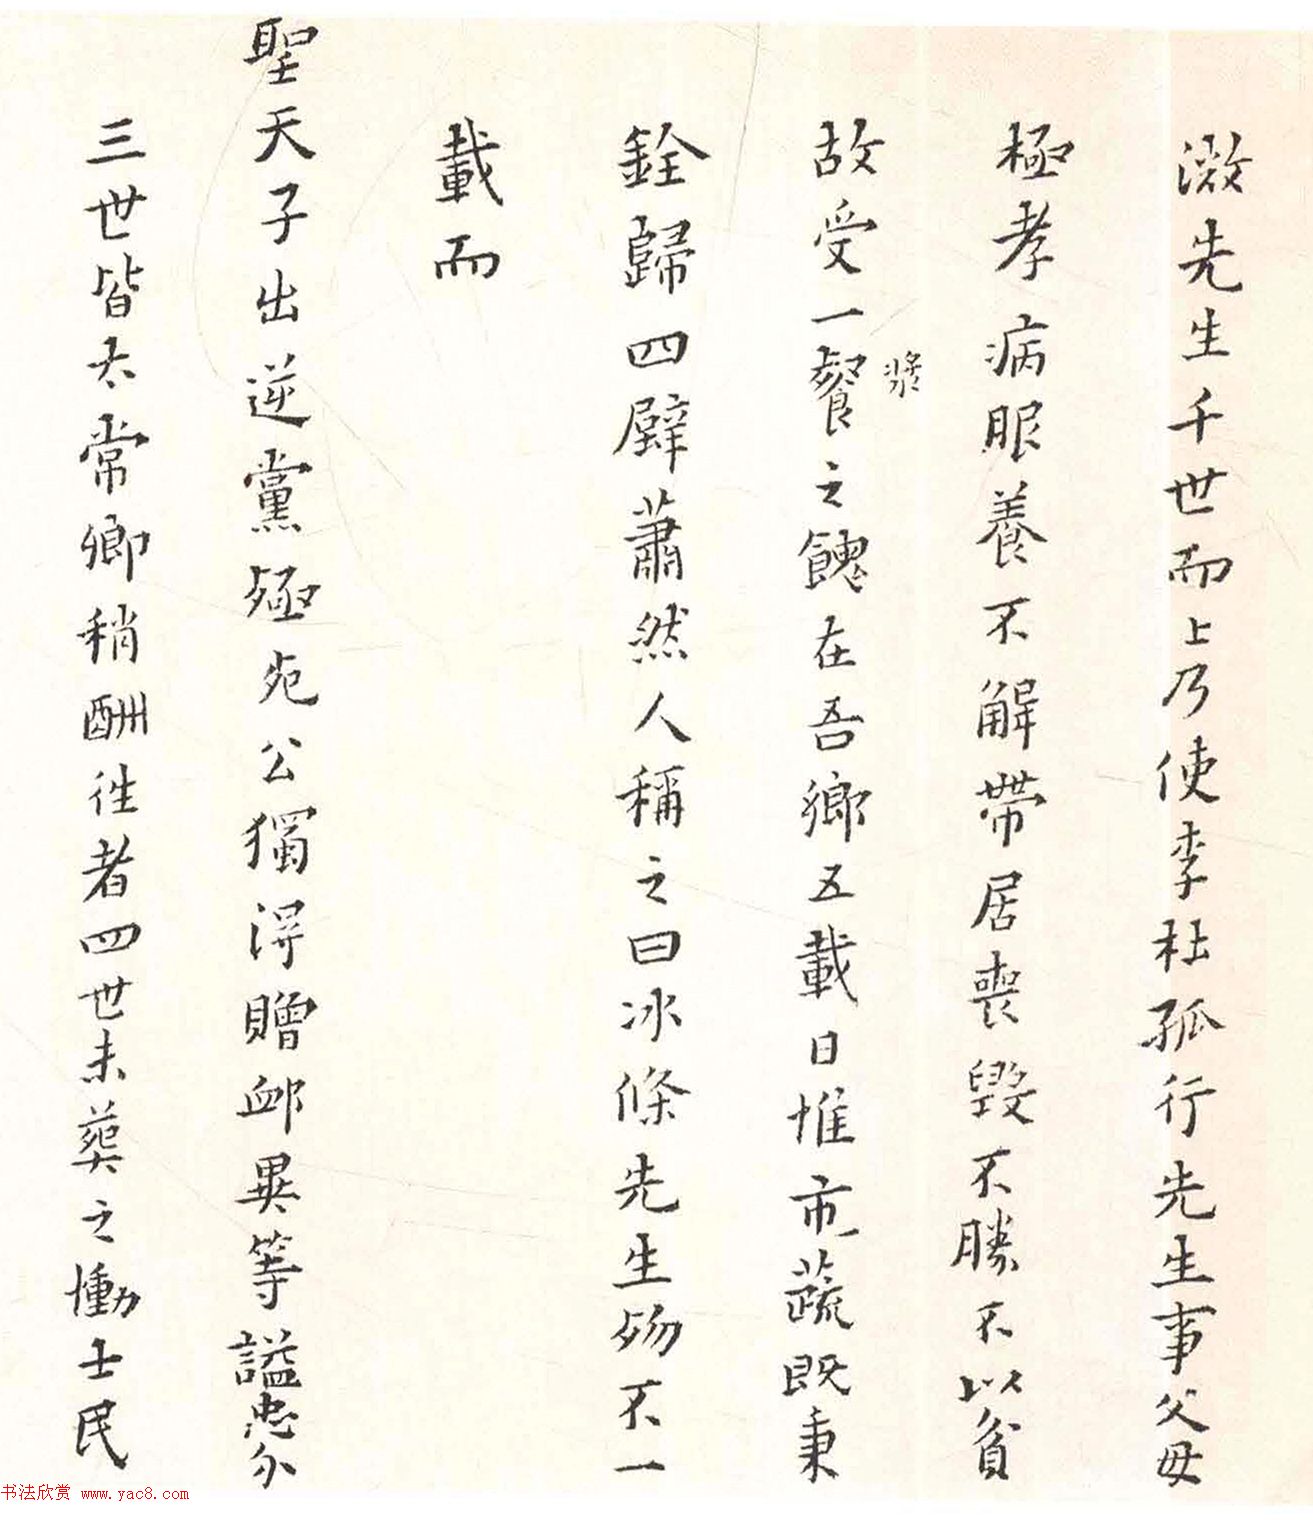 微先生千世而上乃使李杜孤行先生事父母
極孝病服養不解帶居喪毀不勝不以貧
故受一餐之餽在吾鄉五載日惟市蔬既秉
漿
銓歸四壁蕭然人稱之曰冰條先生殁不一
載而
聖天子出逆黨殛死公獨得贈卹異等謚忠介
三世皆太常卿稍酬往者四世未葬之慟士民
书法欣赏 www.yac8.com